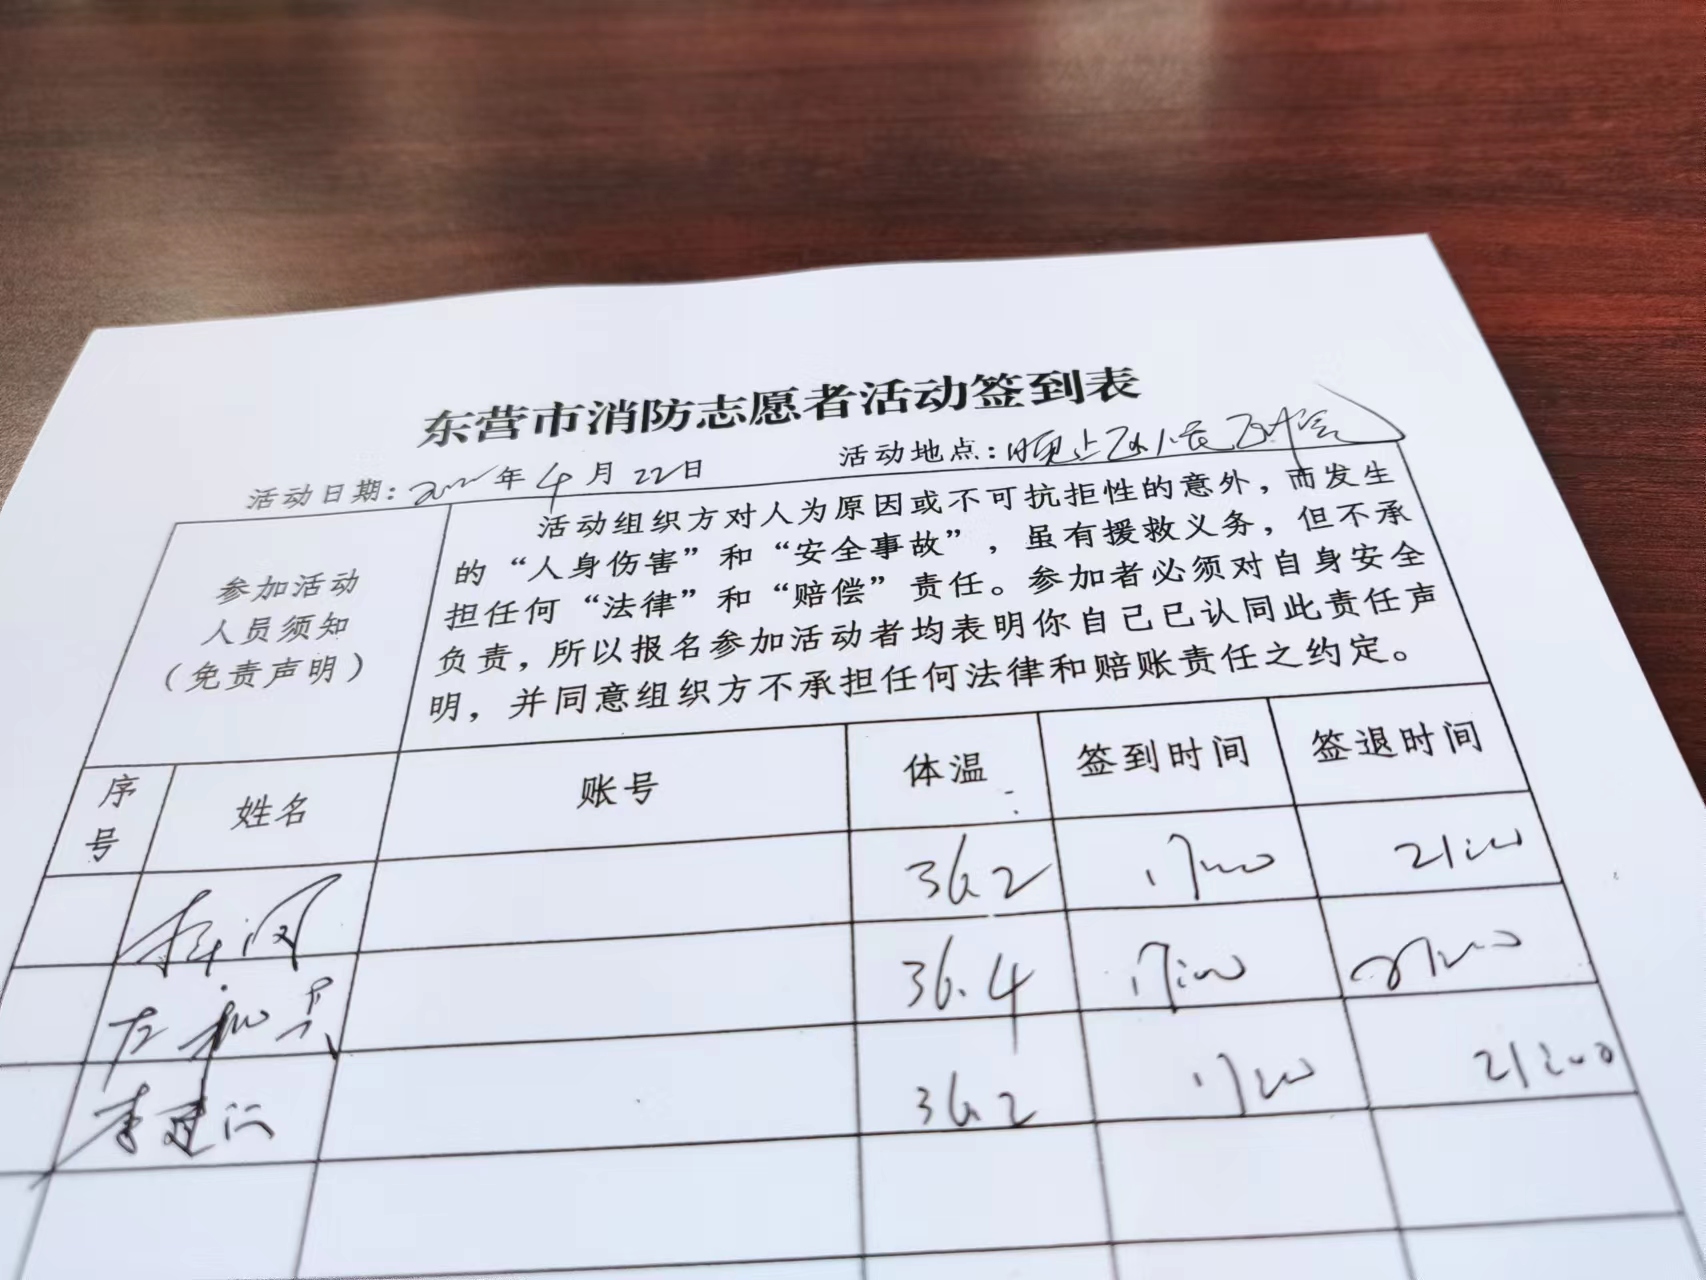 东营市消防志愿者活动签到表
活动日期: 2022年4月22日 活动地点:
参加活动
人员须知
(免责声明)
活动组织方对人为原因或不可抗拒性的意外,而发生
的“人身伤害”和“安全事故”,虽有援救义务,但不承
担任何“法律”和“赔偿”责任。参加者必须对自身安全
负责,所以报名参加活动者均表明你自己已认同此责任声
明,并同意组织方不承担任何法律和赔账责任之约定。
序号 姓名 账号 体温 签到时间 签退时间
36.2 17:00 21:00
36.4 17:00 21:00
李建 36.2 17:00 21:00